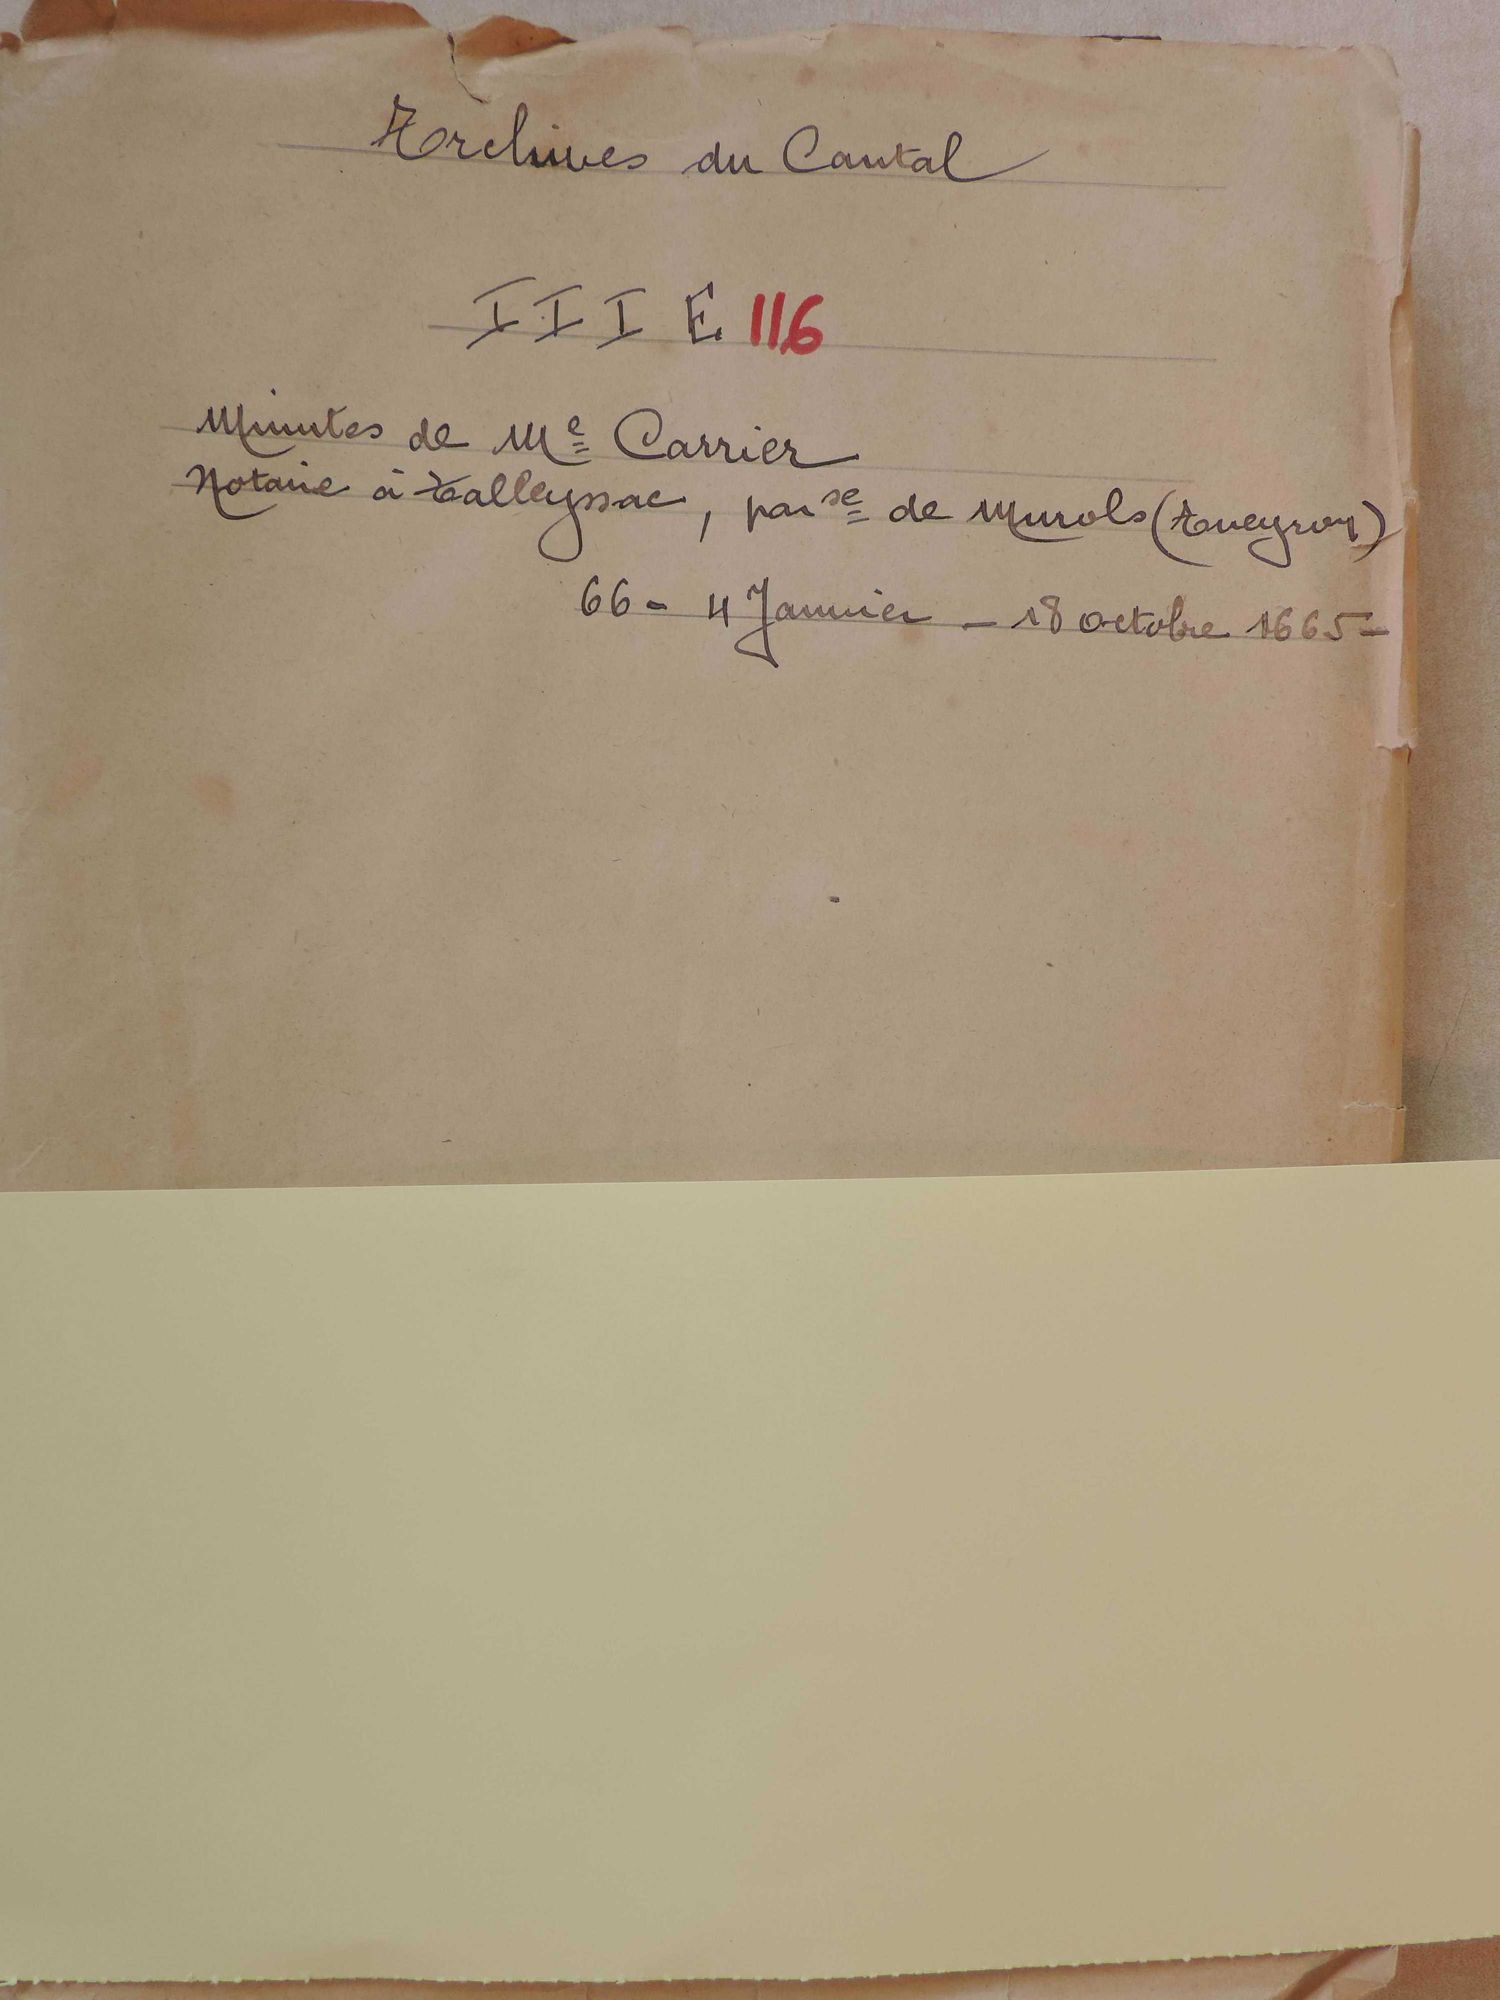 Archives du Cantal
III E 116
Minutes de Me Carrier
Notaire à Talleyssac, parse de Murols (Aveyron)
66 - 4 Janvier - 18 octobre 1665 -